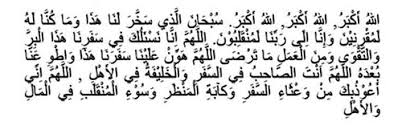 اللهُ أَكْبَرُ, اللهُ أَكْبَرُ, اللهُ أَكْبَرُ. سُبْحَانَ الَّذِي سَخَّرَ لَنَا هَذَا وَمَا كُنَّا لَهُ
مُقْرِنِيْنَ وَإِنَّا إِلَى رَبِّنَا لَمُنْقَلِبُوْنَ. اللَّهُمَّ إِنَّا نَسْئَلُكَ فِي سَفَرِنَا هَذَا الْبِرَّ
وَالتَّقْوَى وَمِنَ الْعَمَلِ مَا تَرْضَى اللَّهُمَّ هَوِّنْ عَلَيْنَا سَفَرَنَا هَذَا وَاطْوِ عَنَّا
بُعْدَهُ اللَّهُمَّ أَنْتَ الصَّاحِبُ فِي السَّفَرِ وَالْخَلِيْفَةُ فِي الأَهْلِ , اللَّهُمَّ إِنِّي
أَعُوْذُبِكَ مِنْ وَعْثَاءِ السَّفَرِ وَكَآبَةِ الْمَنْظَرِ وَسُوْءِ الْمُنْقَلَبِ فِي الْمَالِ
وَالأَهْلِ